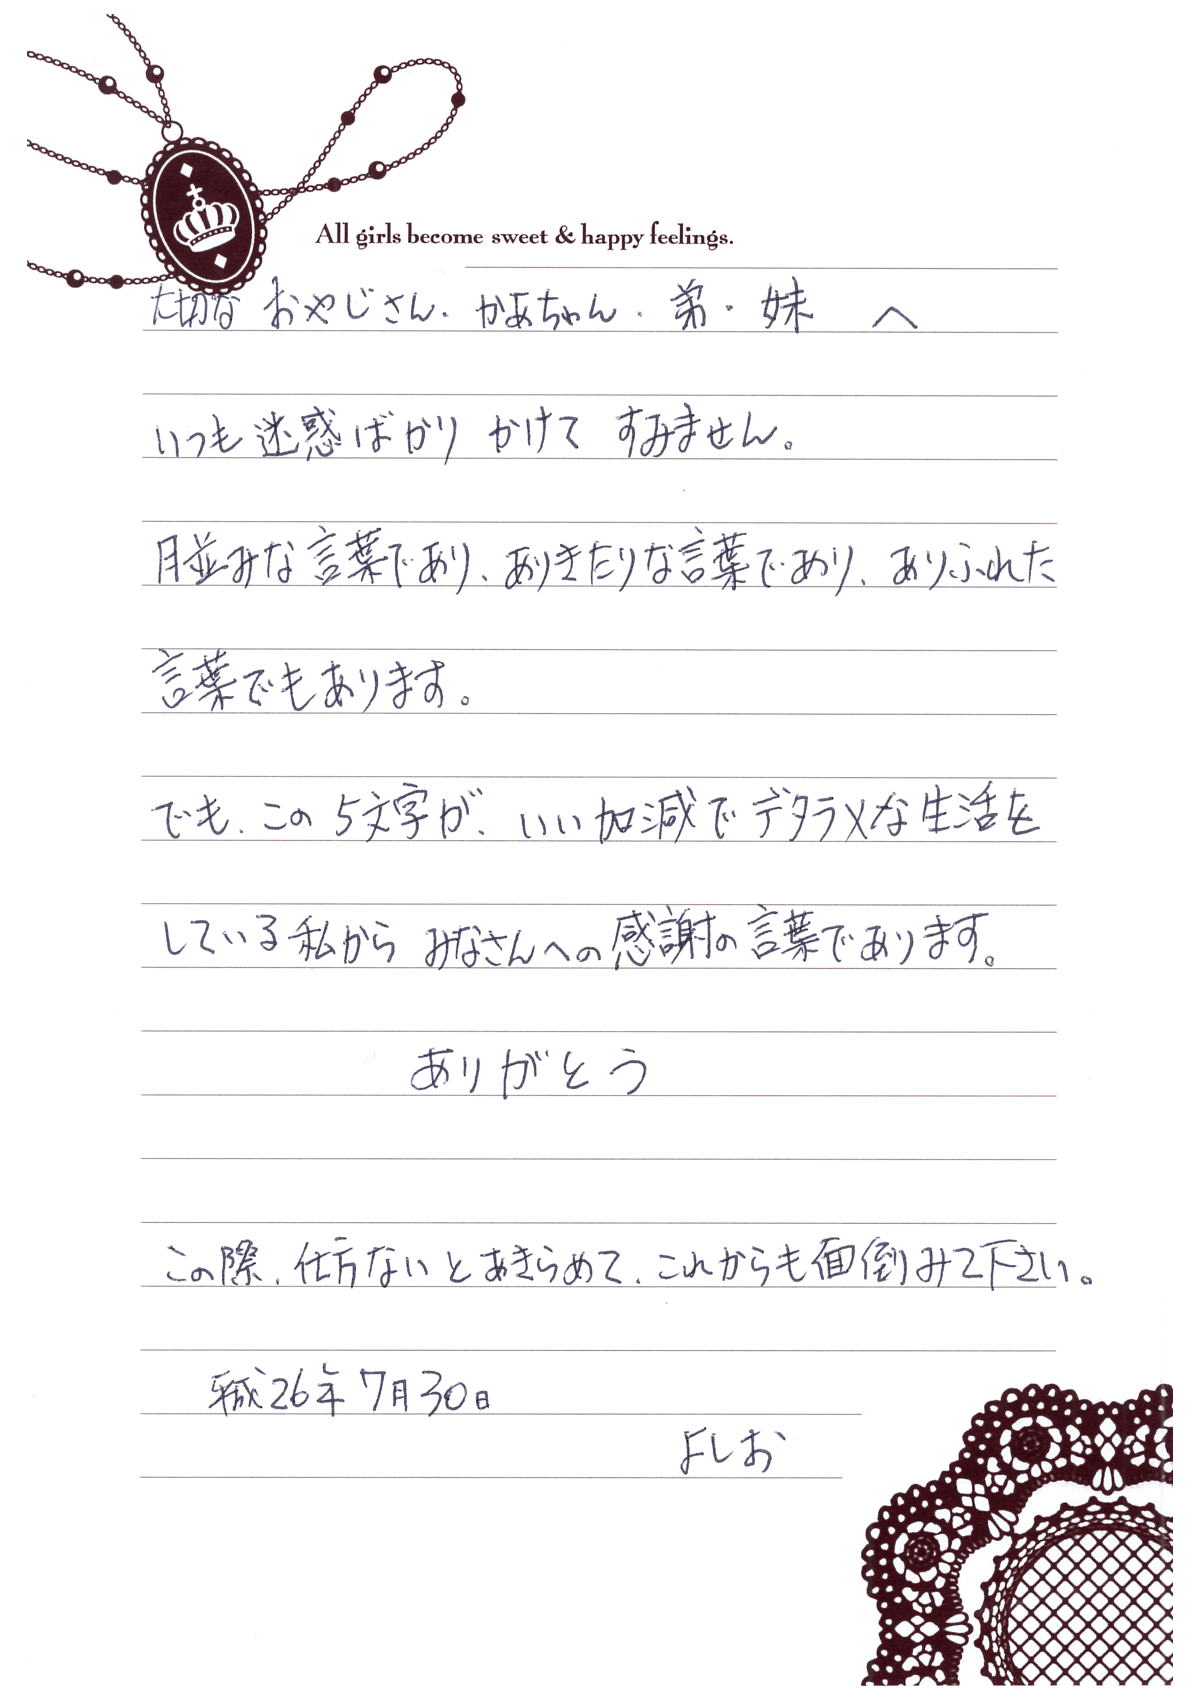 All girls become sweet & happy feelings.
大切な おやじさん・かあちゃん・弟・妹 へ
いつも迷惑ばかり かけて すみません。
月並みな言葉であり、ありきたりな言葉であり、ありふれた
言葉でもあります。
でも、この5文字が、いい加減でデタラメな生活を
している私から みなさんへの感謝の言葉であります。
ありがとう
この際、仕方ないとあきらめて、これからも面倒みて下さい。
平成26年7月30日
よしお